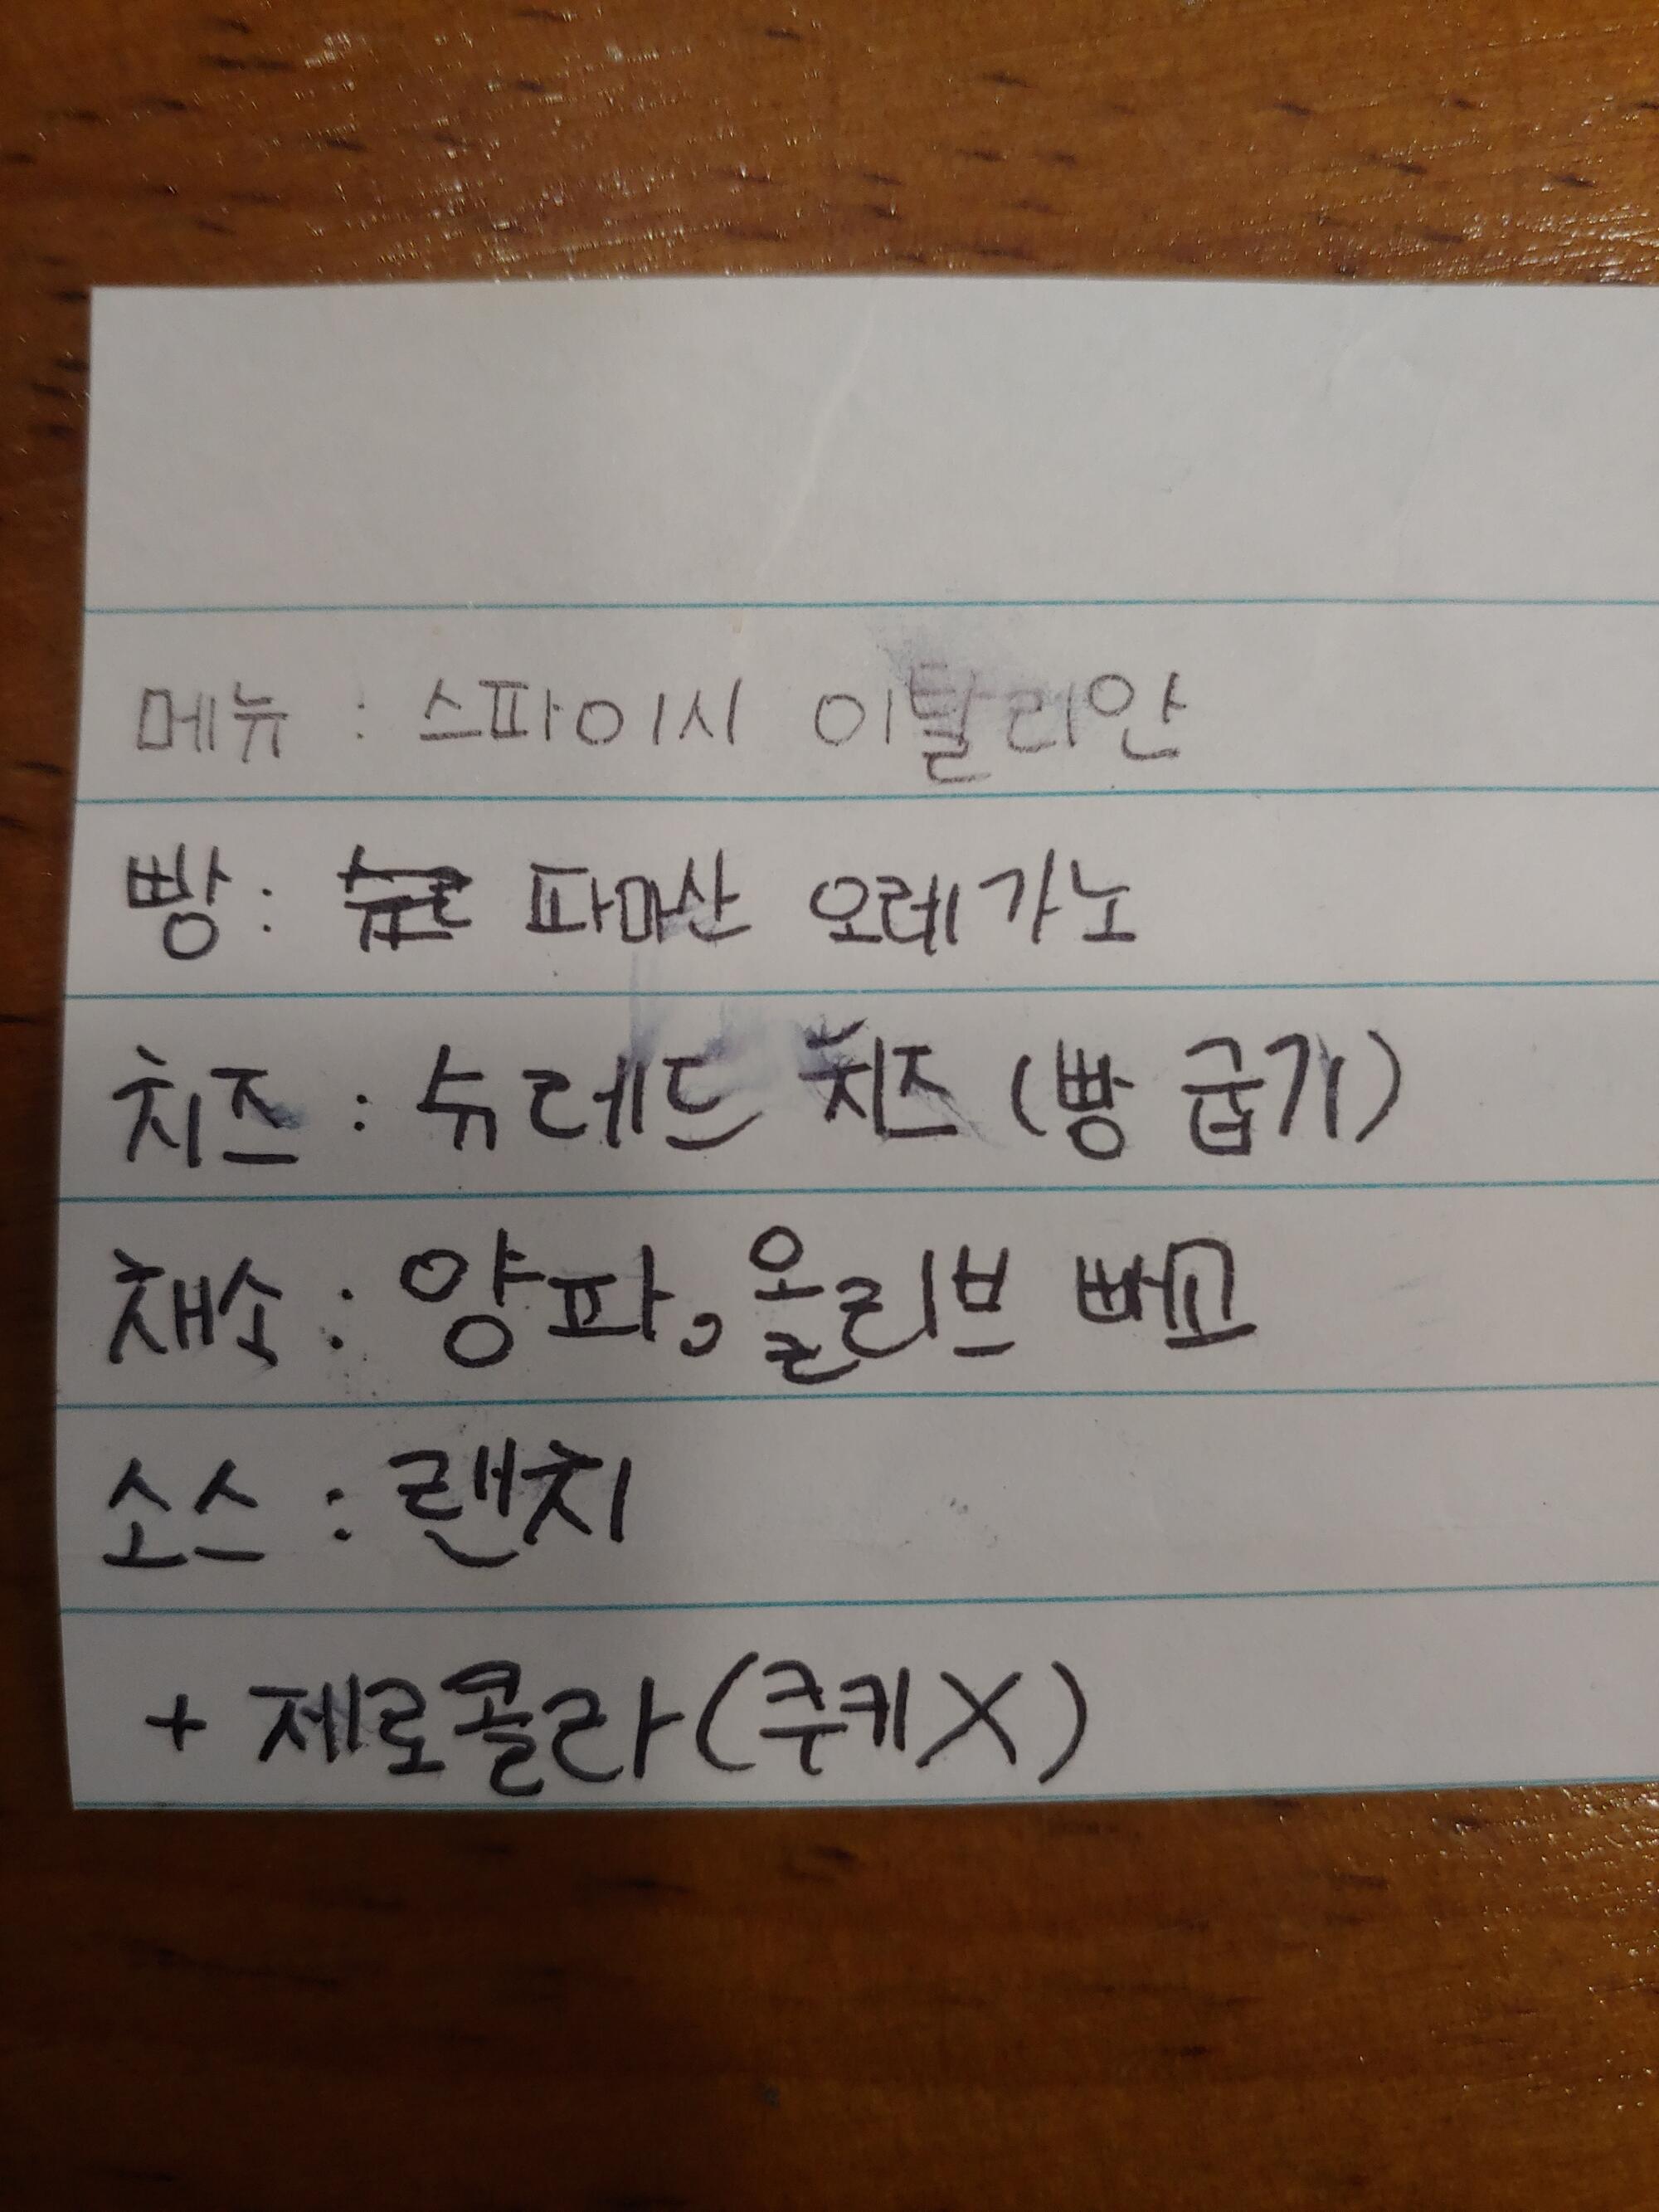 메뉴 : 스파이시 이탈리안
빵: 파마산 오레가노
치즈 : 슈레드 치즈 (빵 굽기)
채소 : 양파, 올리브 빼고
소스 : 랜치
+ 제로콜라(쿠키X)